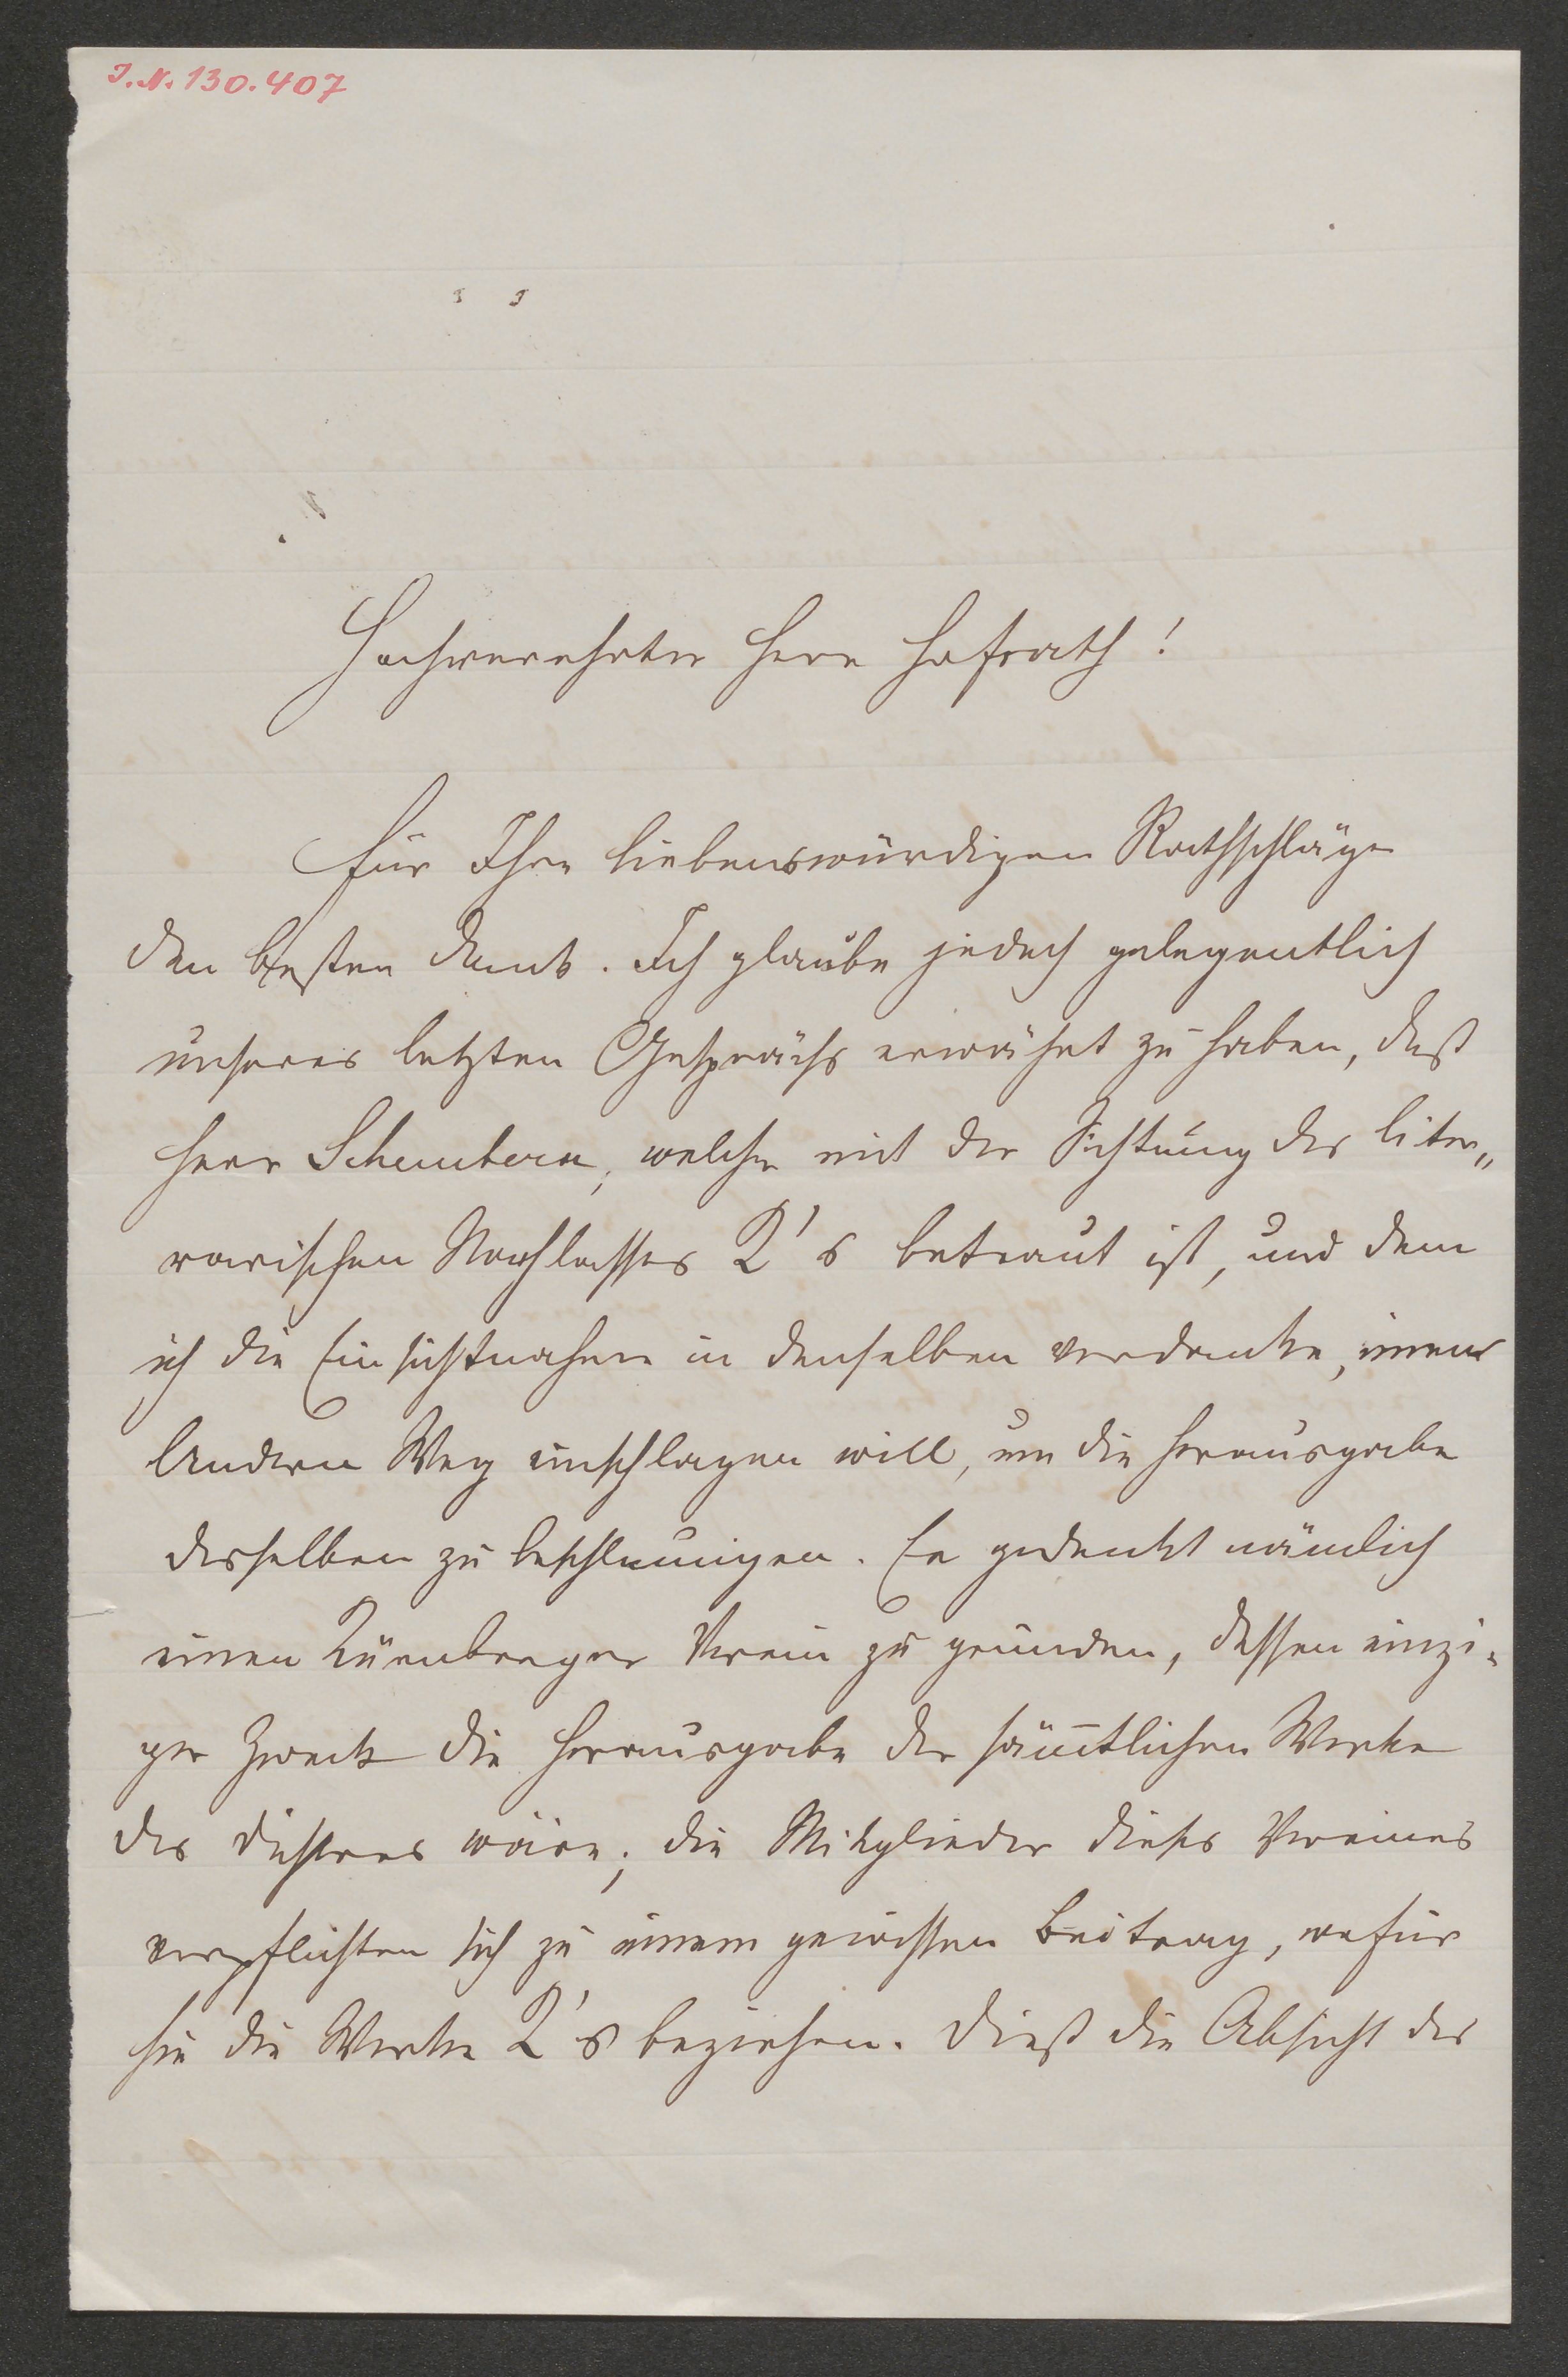 J.N. 130.407
Hochverehrter Herr Hofrath!
Für Ihre liebenswürdigen Rathschläge
den besten Dank. Ich glaube jedoch gelegentlich
unseres letzten Gesprächs erwähnt zu haben, daß
Herr Schembera, welcher mit der Sichtung des lite„
rarischen Nachlasses K's betraut ist, und dem
ich die Einsichtnahme in denselben verdanke, einen
Andern Weg einschlagen will, um die Herausgabe
desselben zu beschleunigen. Er gedenkt nämlich
einen Kürnberger Verein zu gründen, dessen einzi-
ger Zweck die Herausgabe der sämtlichen Werke
des Dichters wäre; die Mitglieder dieses Vereines
verpflichten sich zu einem gewissen Beitrag, wofür
sie die Werke K's beziehen. Dieß die Absicht des